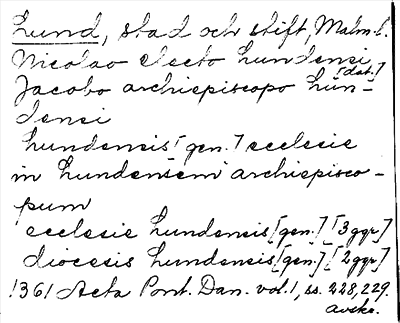 Lund, stad och stift, Malm.l.
Nicolao electo Lundensi,
[dat.]
Jacobo archiepiscopo Lun-
densi
Lundensis [gen.] ecclesie
in Lundensem archiepisco-
pum
ecclesie Lundensis [gen.] [3 ggr]
diocesis Lundensis [gen.] [2 ggr]
1361 Acta Pont. Dan. vol. 1, ss. 228, 229.
avskr.